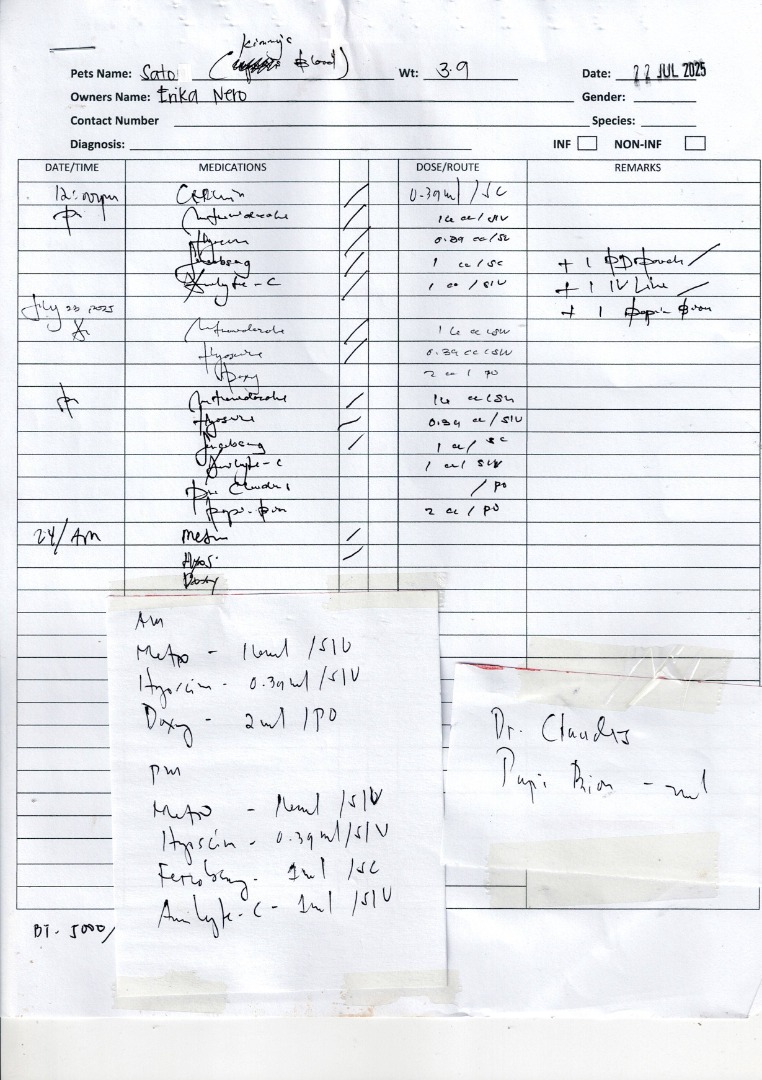 Kimmy's
Pets Name: Sato ( Blood) Wt: 3.9 Date: 22 JUL 2025
Owners Name: Erika Nero Gender:
Contact Number Species:
Diagnosis: INF NON-INF
DATE/TIME MEDICATIONS DOSE/ROUTE REMARKS
12:00pm 0.39ml /SC
Metronidazole 16 cc/SIV
Hyoscin 0.39 cc/
1 cc/SC + 1
Amilyte-C 1 cc/SIV + 1 IV Line
July 23 2025 + 1 Papi-
Metronidazole 16 cc/SIV
Hyoscine 0.39 cc/SIV
Doxy 2 cc / PO
Metronidazole 16 cc/SIV
Hyoscine 0.39 cc/SIV
1 cc/ SC
Amilyte-C 1 cc/ SIV
/ PO
Papi- 2 cc / PO
24/ AM Metro
Hyos.
Doxy
AM
Metro - 16ml /SIV
Hyoscin - 0.39ml /SIV
Doxy - 2ml /PO
PM
Metro - 16ml /SIV
Hyoscin - 0.39ml/SIV
Ferrobeng - 1ml /SC
Amilyte-C - 1ml /SIV
Dr. Claudes
Papi Bion - 2ml
BT - 5000/